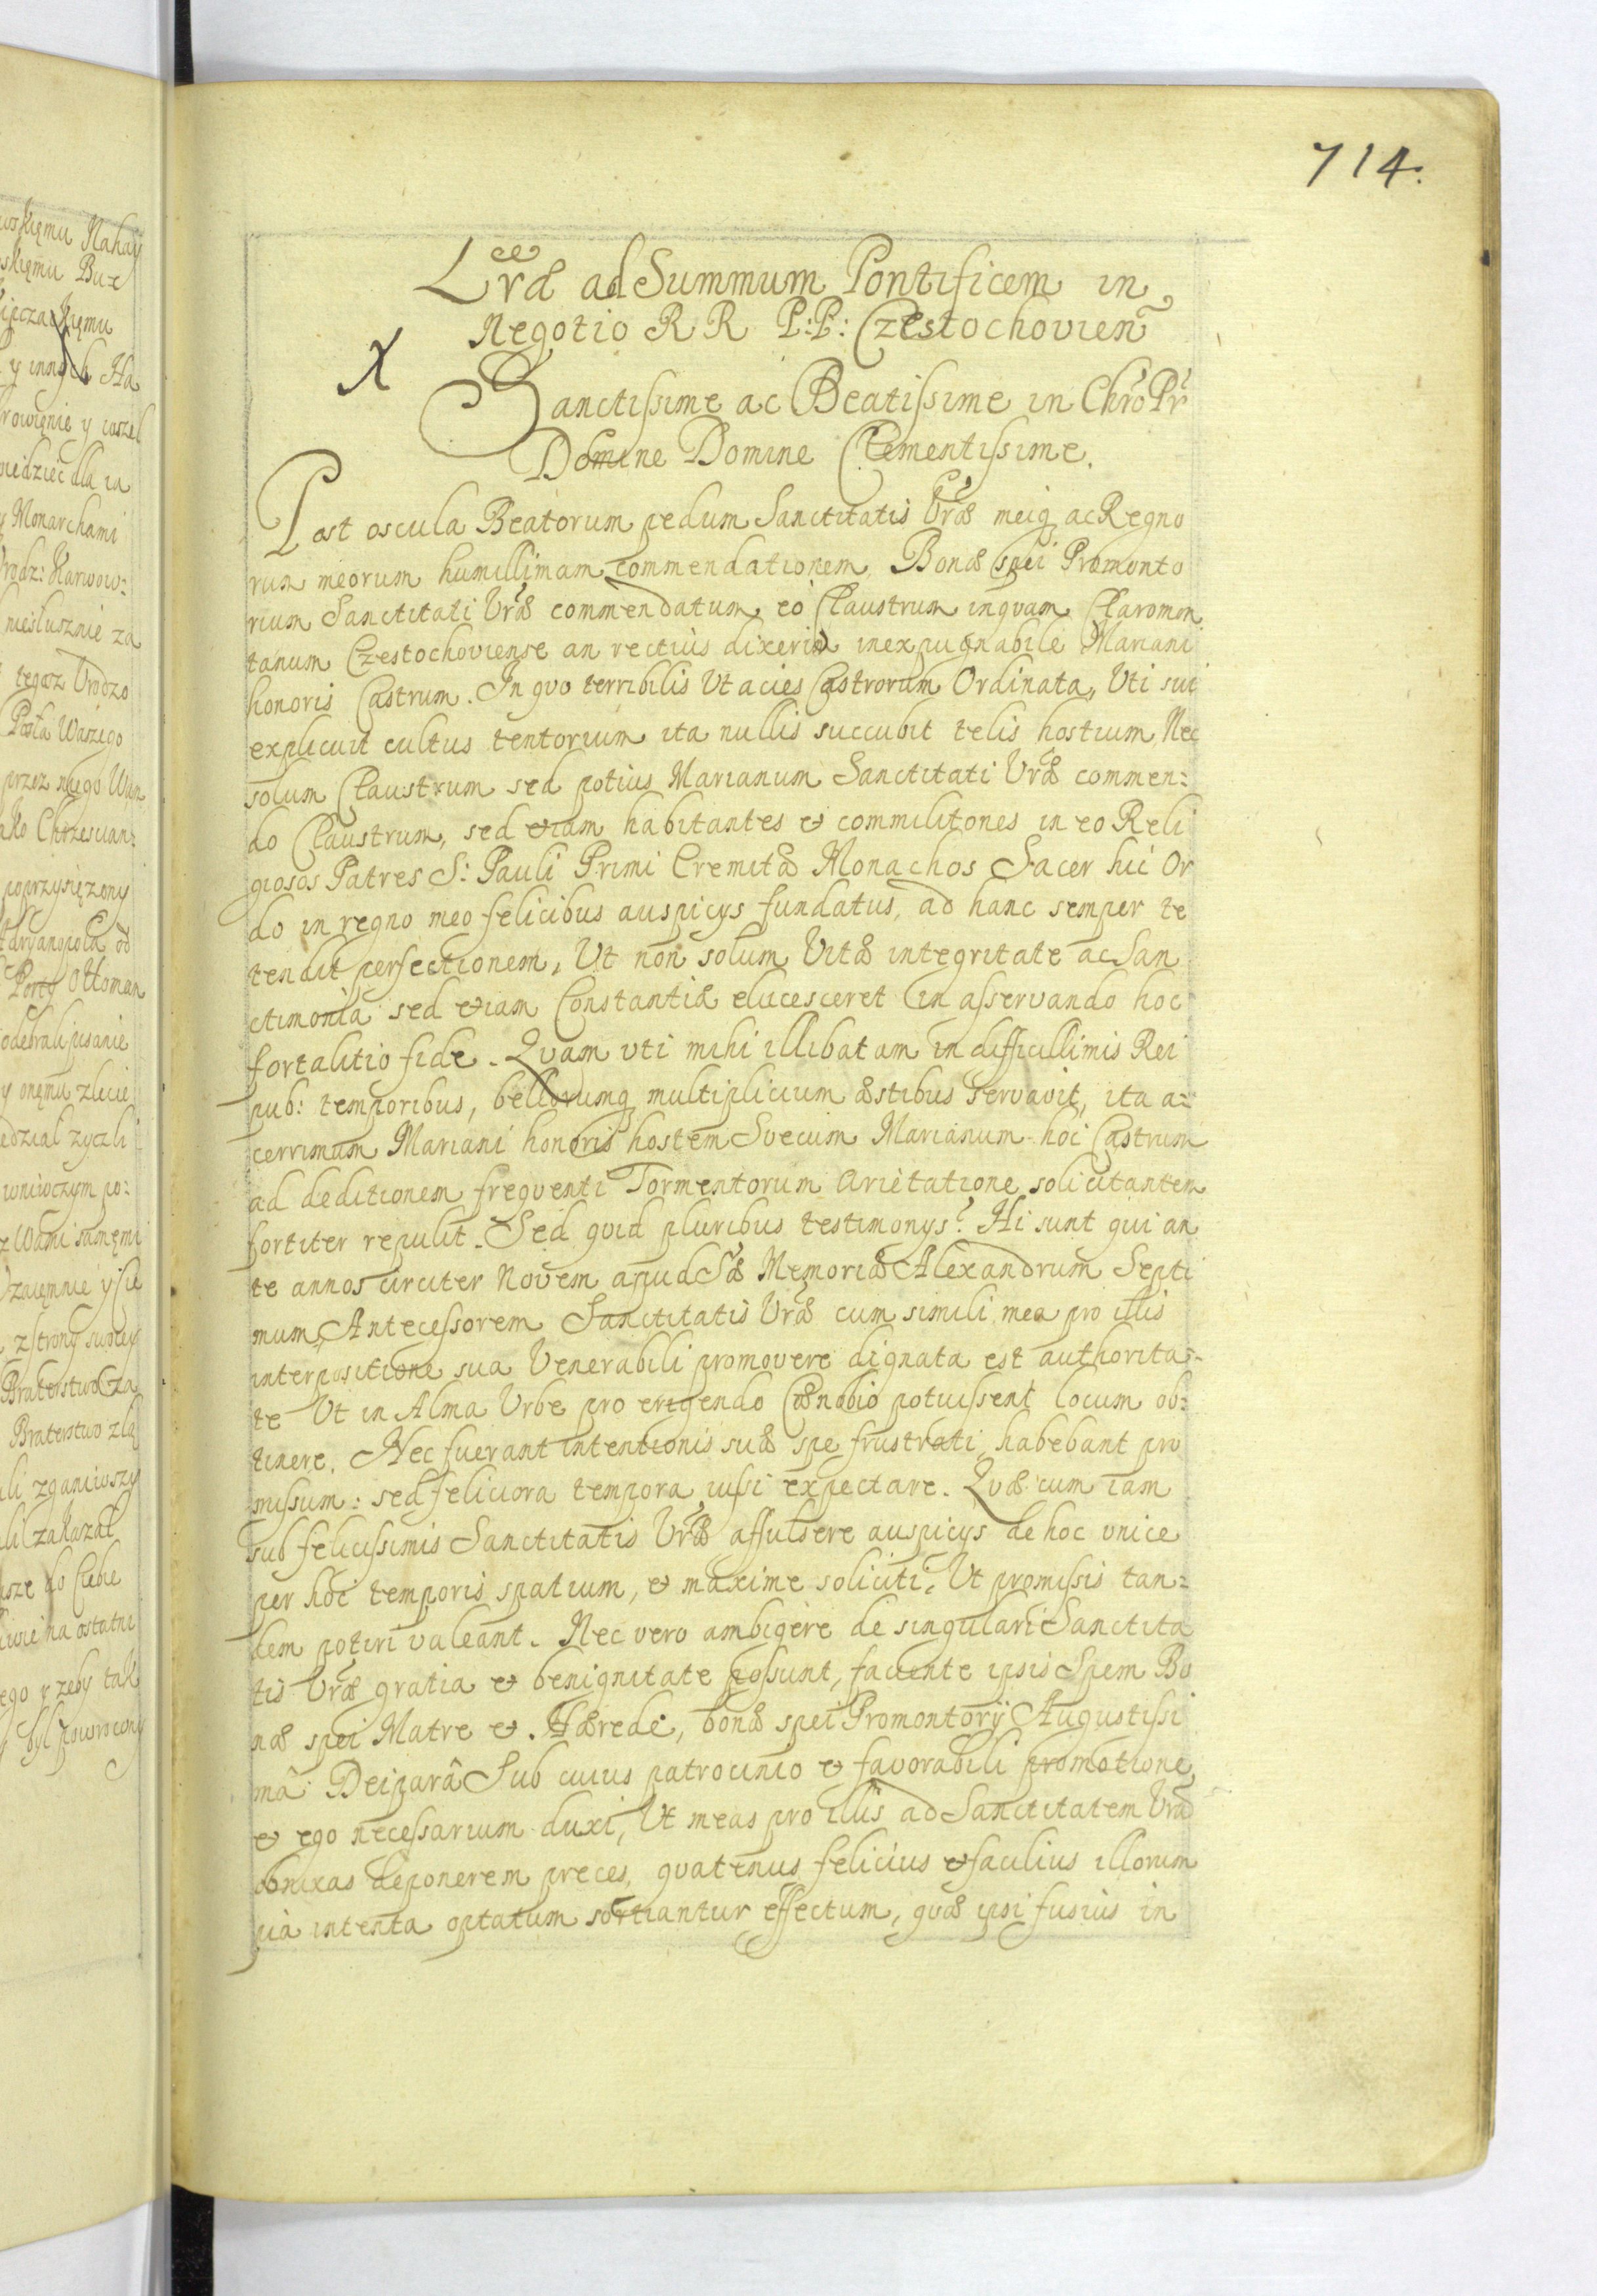 714.
Lræ ad Summum Pontificem in
Negotio RR P:P: Czestochovien
Sanctissime ac Beatissime in Chro Pr
Domine Domine Clementissime.
Post oscula Beatorum pedum Sanctitatis Vræ meiq acRegno
rum meorum humillimam commendationem. Bonæ spei Promonto
rium Sanctitati Vræ commendatum eo Claustrum inquam Claromon
tanum Czestochoviense an rectius dixerim inexpugnabile Mariani
honoris Castrum. In quo terribilis Ut acies Castrorum Ordinata, Uti sui
explicuit cultus tentorium ita nullis succubit telis hostium, Nec
solum Claustrum sed potius Marianum Sanctitati Vræ commen:
do Claustrum, sed etiam habitantes et commilitones in eo Reli
giosos Patres S: Pauli Primi Eremitæ Monachos Sacer hic Or
do in regno meo felicibus auspicys fundatus, ad hanc semper te
tendit perfectionem, Ut non solum Vitæ integritate ac San
ctimonia sed etiam Constantiæ elucesceret in asservando hoc
fortalitio fide. Quam uti mihi illibatam in difficillimis Rei
pub: temporibus, bellorumq multiplicium æstibus servavit, ita a=
cerrimum Mariani honoris hostem Svecum Marianum hoc Castrum
ad deditionem frequenti Tormentorum Arietatione solicitantem
fortiter repulit. Sed quid pluribus testimonys? Hi sunt qui an
te annos circiter Novem apud Sæ Memoriæ Alexandrum Septi
mum, Antecessorem Sanctitatis Vræ cum simili mea pro illis
interpositione sua Venerabili promovere dignata est authorita=
te Ut in Alma Urbe pro erigendo Cænobio potuissent locum ob:
tinere. Nec fuerant intentionis suæ spe frustrati, habebant pro
missum: sed feliciora tempora iussi expectare. Quæ cum iam
sub felicissimis Sanctitatis Vræ affulsere auspicys de hoc unice
per hoc temporis spatium, et maxime soliciti, Ut promissis tan=
dem potiri valeant. Nec vero ambigere de singulari Sanctita
tis Vræ gratia et benignitate possunt, faciente ipsis Spem Bo
næ spei Matre et Hærede, bonæ spei Promontorij Augustissi
mâ Deiparâ Sub cuius patrocinio et favorabili promotione
et ego necessarium duxi, Ut meas pro illis ad Sanctitatem Vrã
obnixas deponerem preces, quatenus felicius et facilius illorum
pia intenta optatum sortiantur effectum, quæ ipsi fusius in